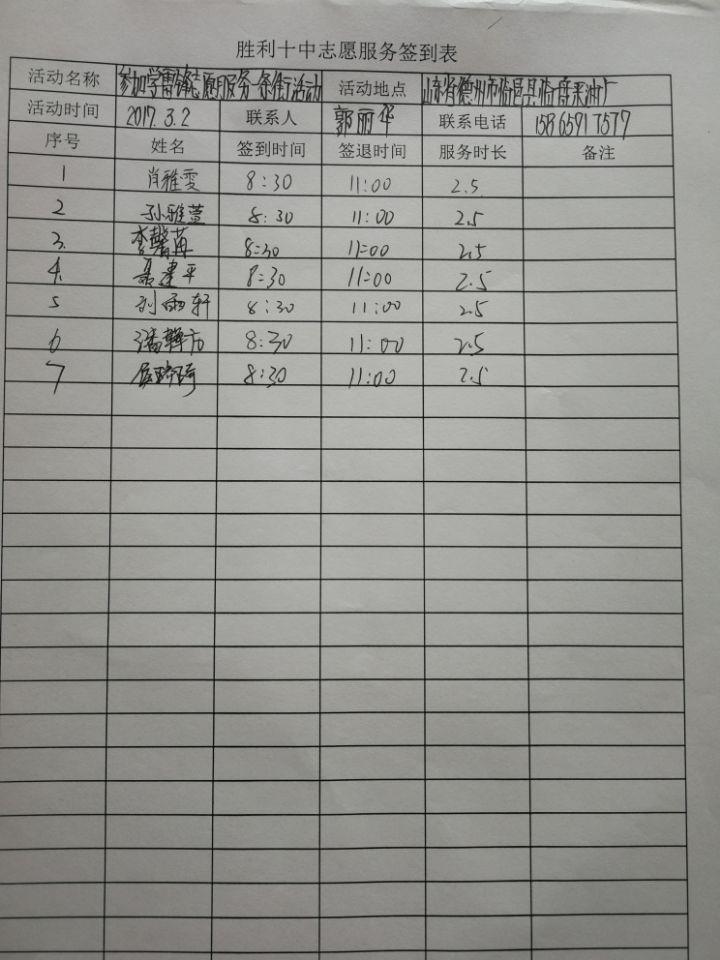 胜利十中志愿服务签到表
活动名称 参加学雷锋志愿服务一条街活动 活动地点 山东省德州市临邑县临盘采油厂
活动时间 2017.3.2 联系人 郭丽华 联系电话 15865917577
序号 姓名 签到时间 签退时间 服务时长 备注
1 肖雅雯 8:30 11:00 2.5
2 孙雅萱 8:30 11:00 2.5
3. 李馨苒 8:30 11:00 2.5
4. 聂建平 8:30 11:00 2.5
5 刘雨轩 8:30 11:00 2.5
6 潘 8:30 11:00 2.5
7 8:30 11:00 2.5